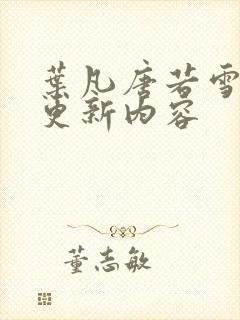 葉凡唐若雪
更新內容
董志敏